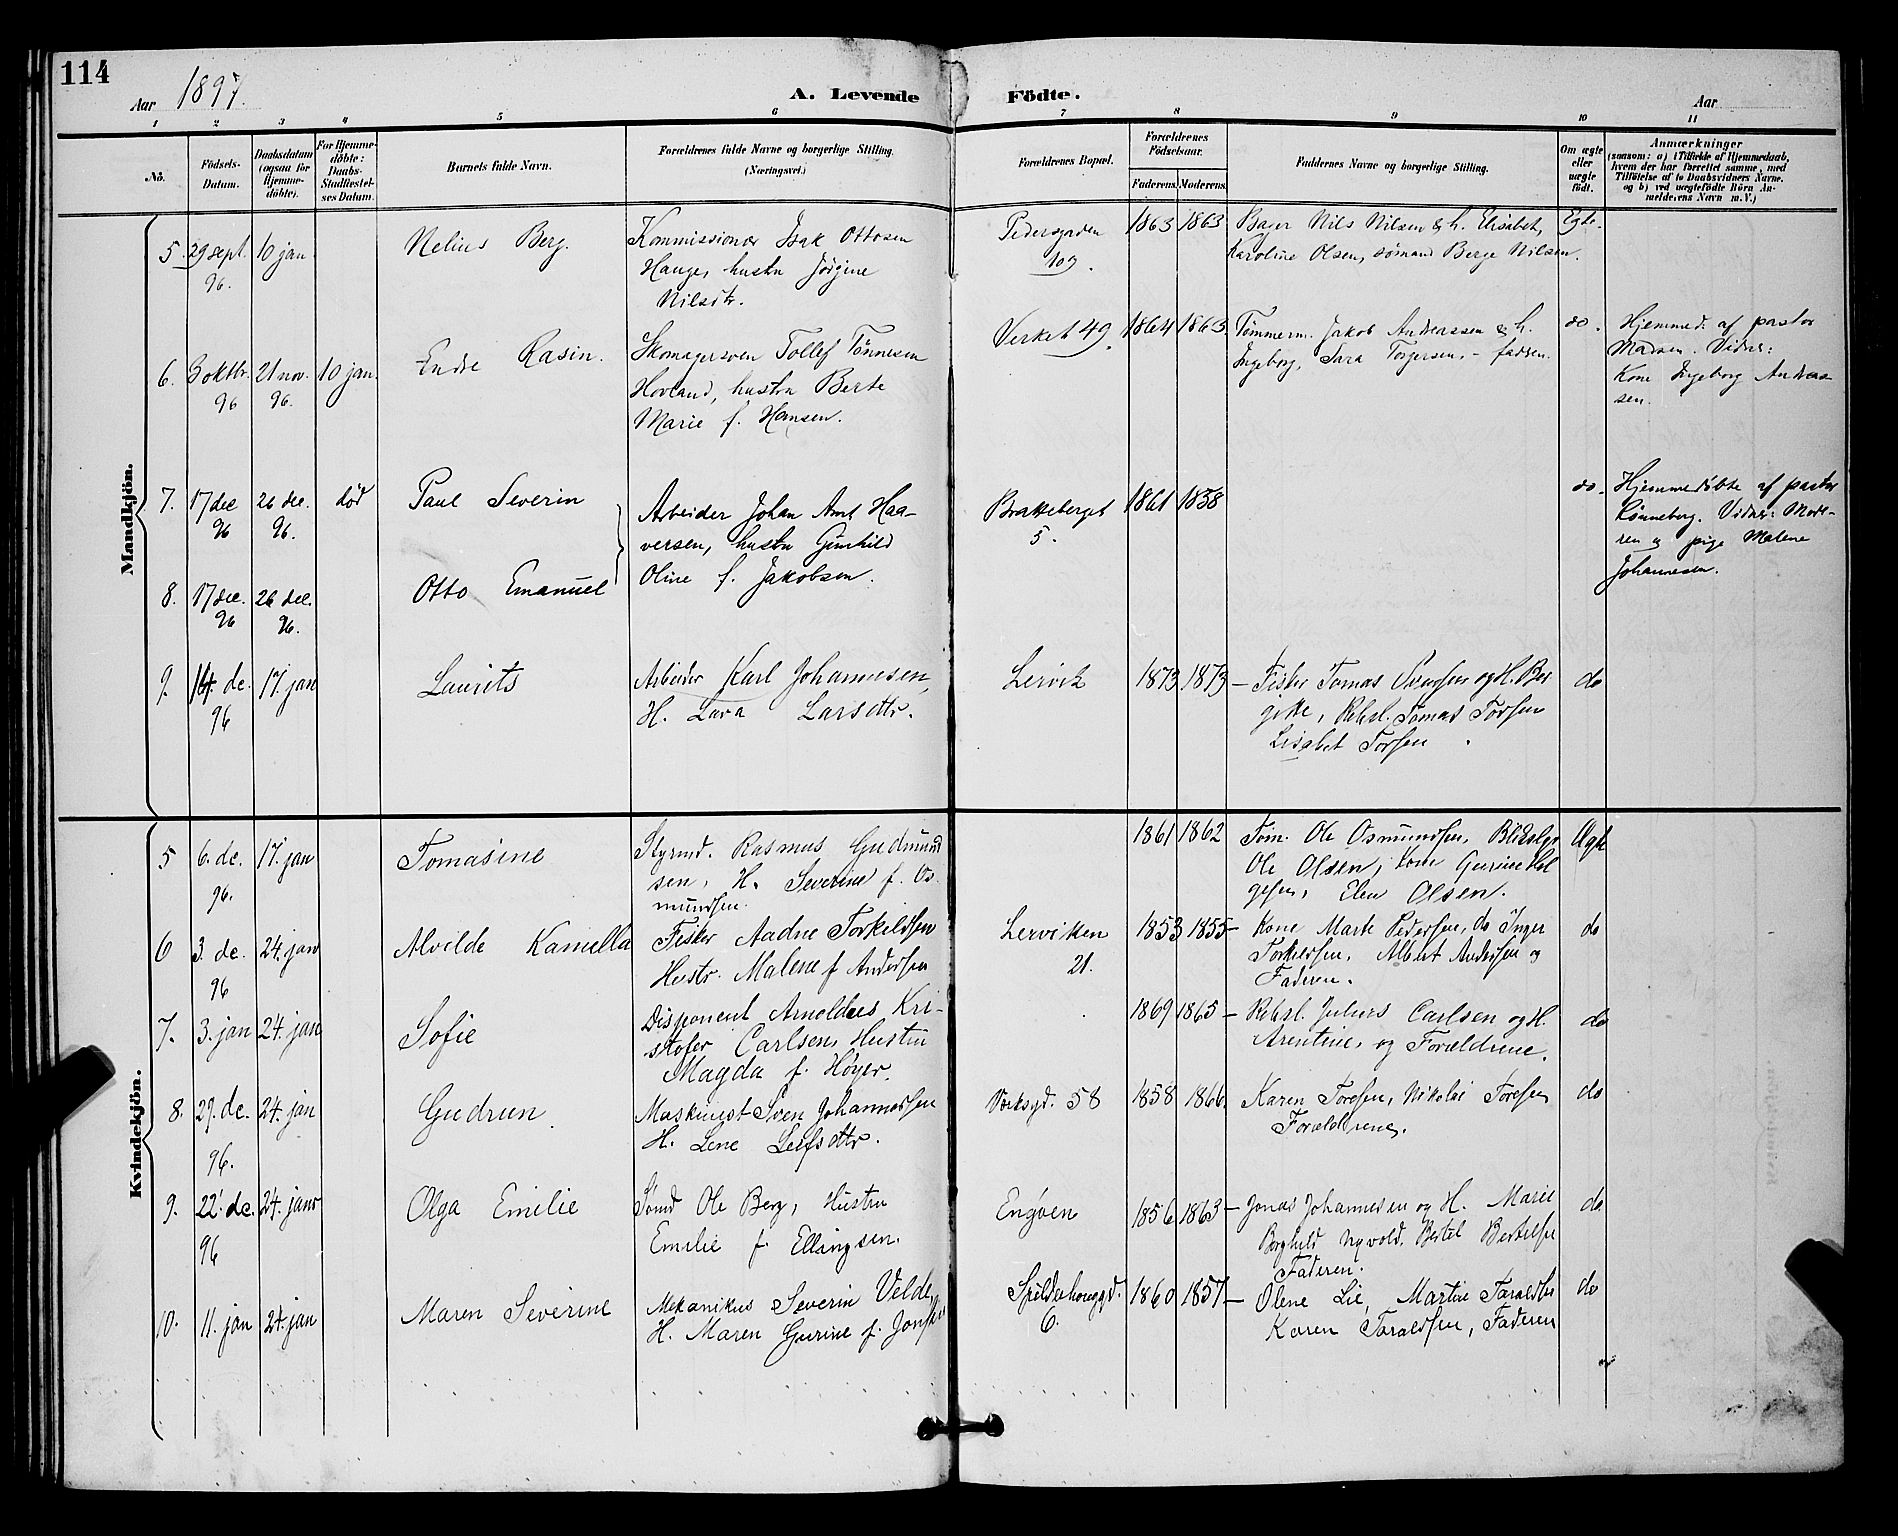 114
Aar 1897.
A. Levende Födte.
Aar
1 2 3 4 5 6 7 8 9 10 11
No.
Födsels-Datum.
Daabsdatum (ogsaa for Hjemme-döbte).
For Hjemme-döbte: Daabs-Stadfæstel-ses Datum.
Barnets fulde Navn.
Forældrenes fulde Navne og borgerlige Stilling.
(Næringsvei.)
Forældrenes Bopæl.
Forældrenes Födselsaar.
Faderens. Moderens.
Faddernes Navne og borgerlige Stilling.
Om ægte eller uægte födt.
Anmærkninger
(saasom: a) i Tilfælde af Hjemmedaab, hvem der har forrettet samme, med Tilföielse af to Daabsvidners Navne. og b) ved uægtefödte Börn Anmelderens Navn m. V.)
Mandkjön.
5. 29 sept. 96. 10 jan Nelius Berg.
Kommissionær Isak Ottosen
Hauge, hustru Jörgine
Nilsdtr.
Pedersgaden
109.
1863 1863
Bager Nils Nilsen & h. Elisabet,
Karoline Olsen, sømand Berge Nilsen.
Egte.
6. 3 oktbr. 96 21 nov. 96. 10 jan. Endre Rasin.
Skomagersven Tollef Tønnesen
Hovland, hustru Berte
Marie f. Hansen.
Verket 49.
1864 1863.
Tømmerm. Jakob Andreassen & h.
Ingeborg, Sara Torgersen, – faderen.
do.
Hjemmed. af pastor
Madsen. Vidner:
Kone Ingeborg Andreas-
sen.
7. 17 dec 96 26 dec. 96. død Paul Severin
Arbeider Johan Arnt Haa-
versen, hustru Gunhild
Oline f. Jakobsen.
Brakkeberget
5.
1861 1858
do.
Hjemmedøbte af pastor
Rønneberg. Vidner: Mode-
ren & pige Malene
Johannesen.
8. 17 dec. 96 26 dec. 96. Otto Emanuel
9. 14. de. 96 17. jan Laurits
Arbeider Karl Johannesen,
H. Lava Larsdtr.
Lervik
1873 1873
– Fisker Tomas Svendsen og H. Ber
gitte, Rebsl. Tomas Torsen
Lisabet Torsen.
do
Kvindekjön.
5 6. de. 96. 17. jan Tomasine
Styrmd. Rasmus Gudmund
sen, H. Severine f. Os-
mundsen.
1861 1862
Tøm. Ole Osmundsen, Blikslgr
Ole Olsen, kone Gurine Hel
gesen, Elen Olsen.
Ægte
6 3. de. 96 24. jan Alvilde Kamella
Fisker Aadne Torkildsen
Hustr. Malene f Andersen
Lerviken
21.
1853 1855
– Kone Marte Pedersen, do Inger
Torkildsen, Albert Andersen og
Faderen.
do
7. 3. jan 24. jan Sofie
Disponent Arnoldus Kri-
stofer Carlsen, Hustru
Magda f. Høyer.
1869 1865
– Rebsl. Julius Carlsen og H.
Arentine, og Forældrene.
do
8. 29. de. 96. 24. jan Gudrun.
Maskinist Sven Johannessen
H. Lene Leifsdtr.
Verksgd. 58
1858 1866.
Karen Toresen, Nikolai Toresen
Forældrene.
do
9. 22. de. 96 24. janr Olga Emilie
Sømd Ole Berg, Hustru
Emilie f. Ellingsen.
Engøen
1856 1863
– Jonas Johannesen og H. Marie
Borghild Nyvold, Bertel Bertelsen
Faderen.
do
10. 11. jan 24. jan Maren Severine
Mekanikus Severin Velde,
H. Maren Gurine f. Jonsen
Spilderhaugsgd.
6.
1860 1857
– Olene Lie, Martine Taraldsen
Karen Taraldsen, Faderen
do